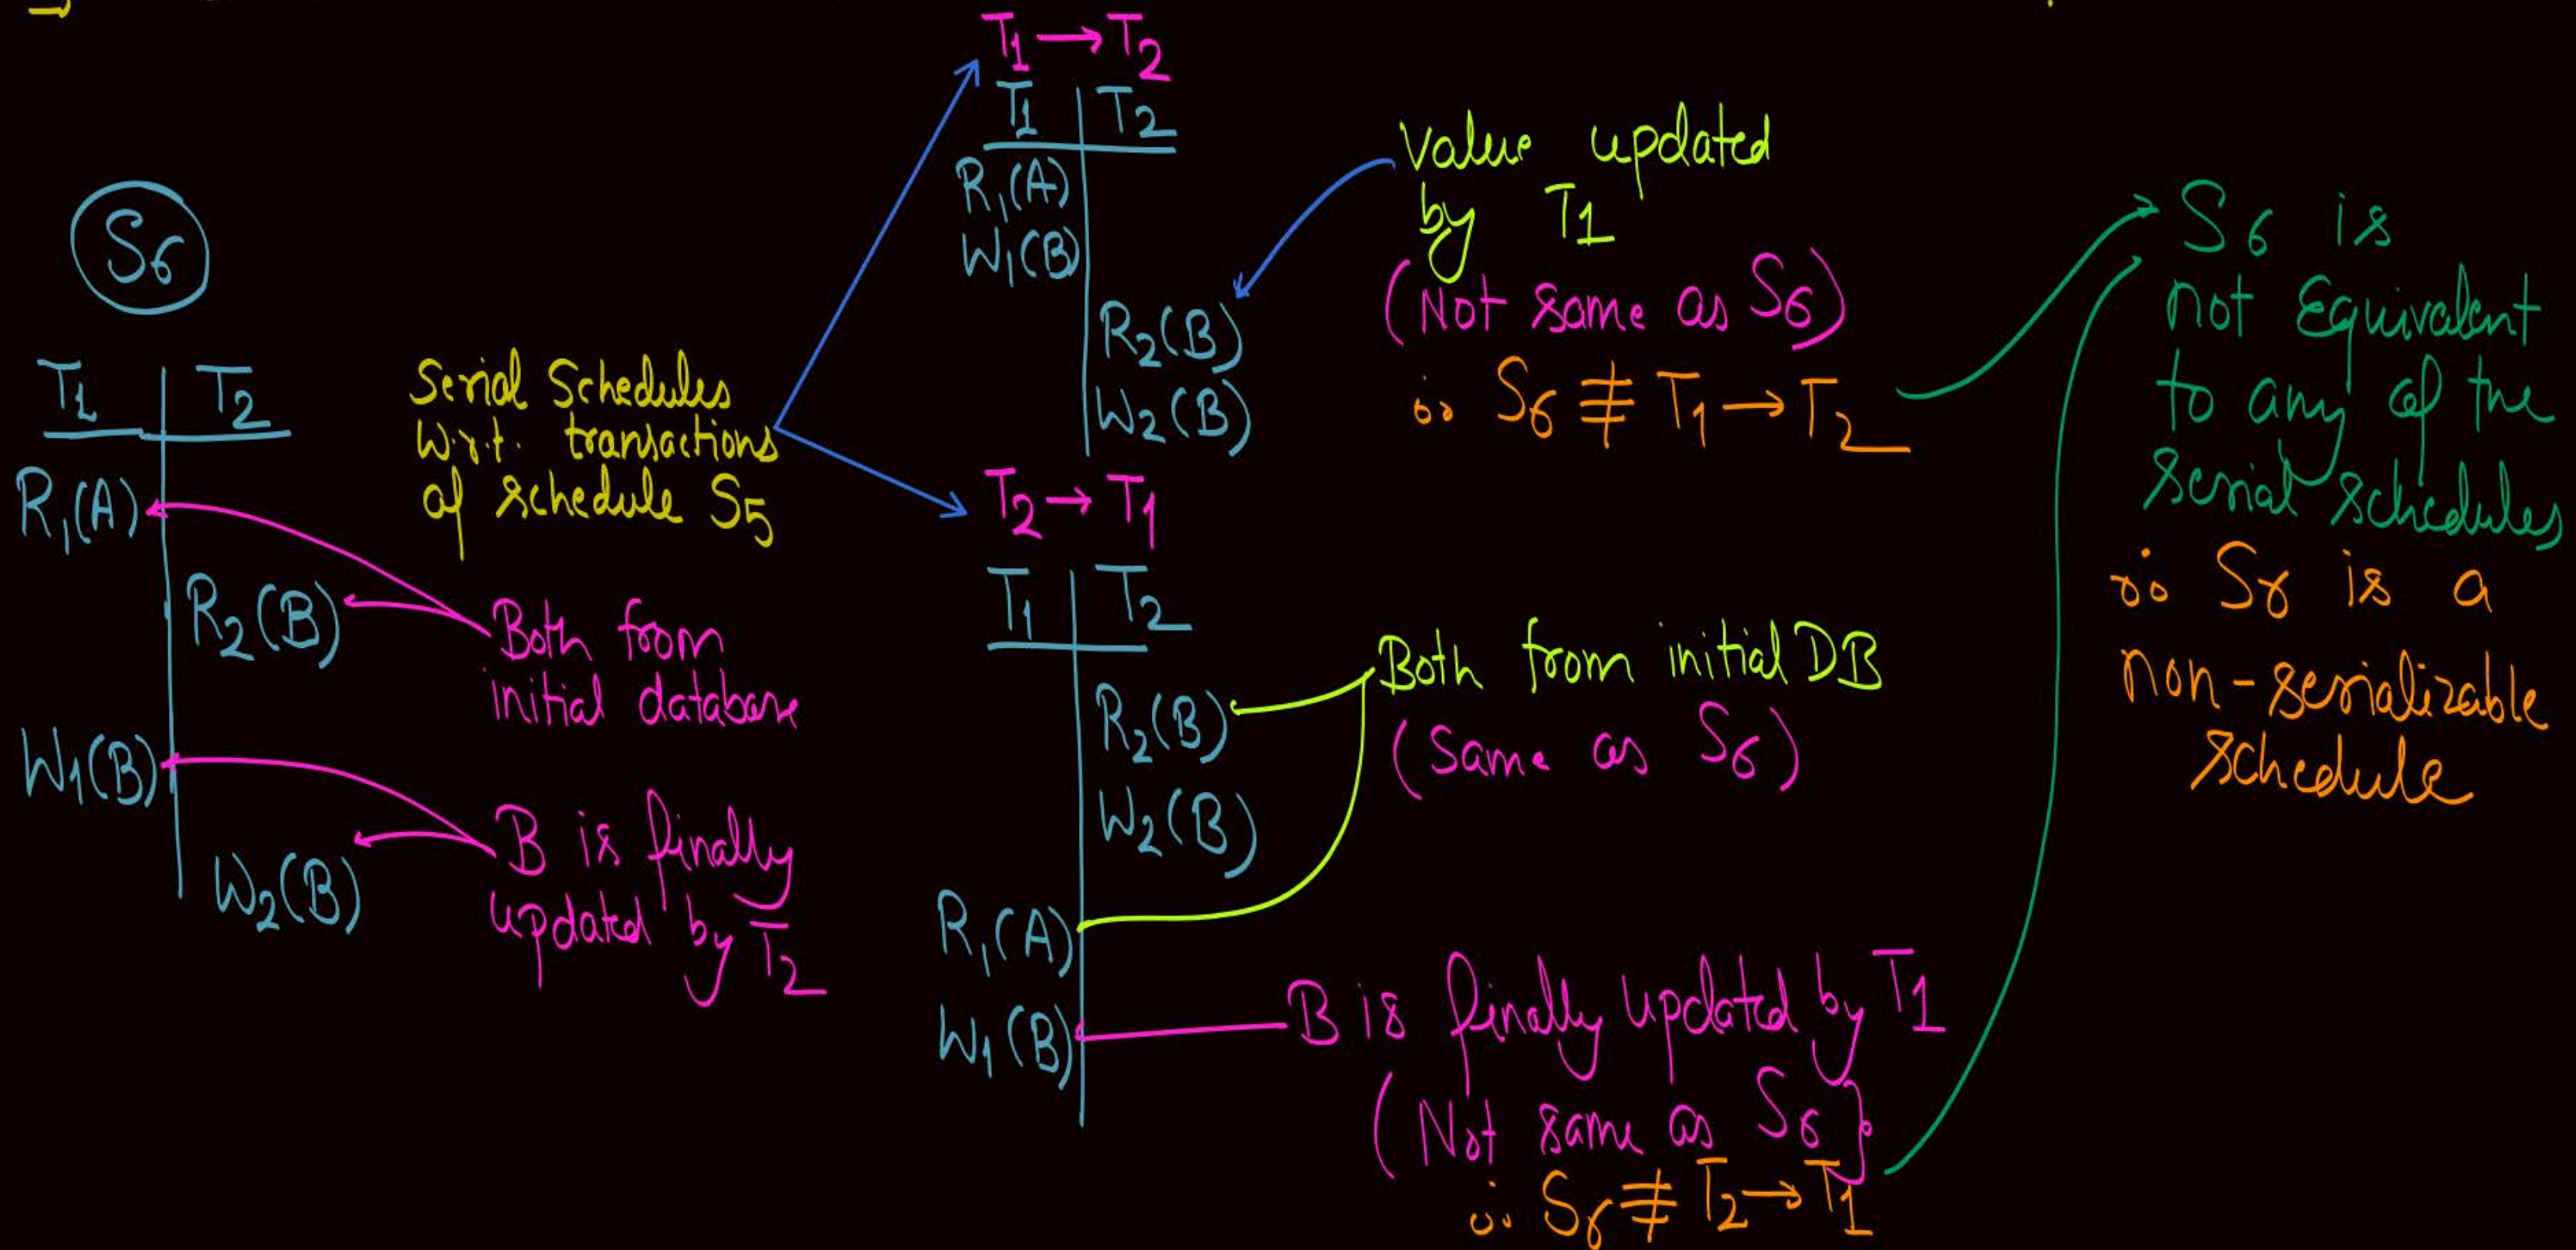 S6
T1 T2
R1(A)
R2(B)
W1(B)
W2(B)
Both from
initial database
B is finally
updated by T2
Serial Schedules
w.r.t. transactions
of schedule S5
T1 → T2
T1 T2
R1(A)
W1(B)
R2(B)
W2(B)
Value updated
by T1
(Not same as S6)
∴ S6 ≢ T1 → T2
T2 → T1
T1 T2
R2(B)
W2(B)
R1(A)
W1(B)
Both from initial DB
(Same as S6)
B is finally updated by T1
(Not same as S6)
∴ S6 ≢ T2 → T1
S6 is
not Equivalent
to any of the
serial schedules
∴ S6 is a
non-serializable
schedule